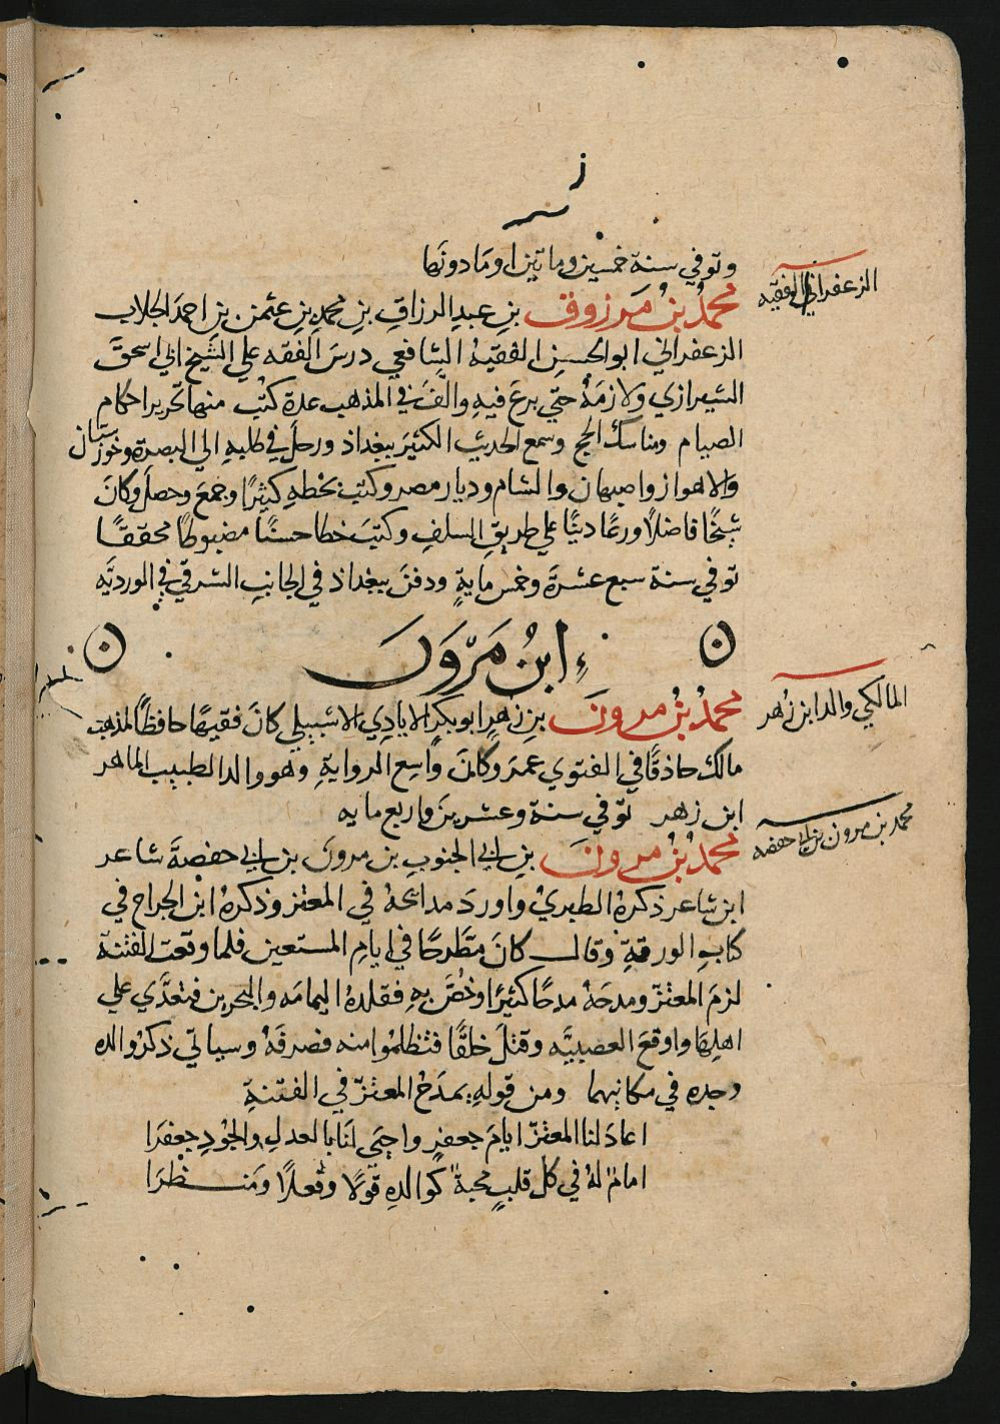 وتوفي سنة خمسين وماتين او مادونها
الزعفراني الفقيه
محمد بن مرزوق بن عبد الرزاق بن محمد بن عثمن بن احمد الجلاب
الزعفراني ابو الحسن الفقيه الشافعي درس الفقه علي الشيخ ابي اسحق
الشيرازي ولازمه حتي برع فيه والف في المذهب عدة كتب منها تحرير احكام
الصيام ومناسك الحج وسمع الحديث الكثير ببغداذ ورحل في طلبه الي البصرة وخوزستان
والاهواز واصبهان والشام وديار مصر وكتب بخطه كثيرًا وجمع وحصل وكان
شيخًا فاضلًا ورعًا دينًا علي طريق السلف وكتب خطا حسنًا مضبوطًا محققًا
توفي سنة سبع عشرة وخمس ماية ودفن ببغداذ في الجانب الشرقي في الورديه
ابن مَرْوَن
المالكي والد ابن زهر
محمد بن مرون بن زهر ابو بكر الايادي الاشبيلي كان فقيهًا حافظًا لمذهب
مالك حاذقًا في الفتوي عمر وكان واسع الرواية وهو والد الطبيب الماهر
ابن زهر توفي سنة وعشرين واربع مايه
محمد بن مرون بن ابي حفصه
محمد بن مرون بن ابي الجنوب بن مرون بن ابي حفصة شاعر
ابن شاعر ذكره الطبري واورد مدائحه في المعتز وذكره ابن الجراح في
كتاب الورقة وقال كان متطرحًا في ايام المستعين فلما وقعت الفتنة
لزم المعتز ومدحه مدحًا كثيرًا وخص به فقلده اليمامه والبحرين فتعدي علي
اهلها واوقع العصبيه وقتل خلقًا فتظلموا منه فصرفه وسياتي ذكر والده
وجده في مكانيهما ومن قوله يمدح المعتز في الفتنة
اعاد لنا المعتز ايام جعفر واحيي لنا بالعدل والجود جعفرا
امام له في كل قلب محبة كوالده قولا وفعلا ومنظرا